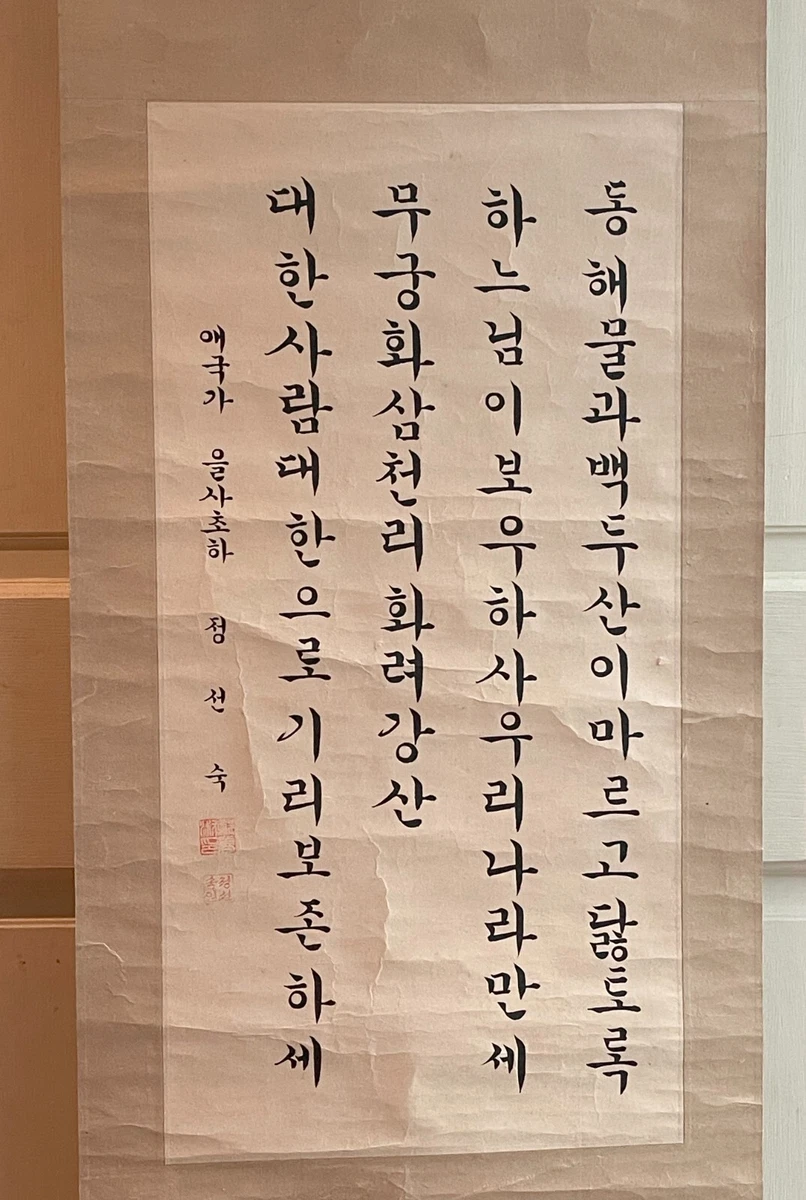 동해물과백두산이마르고닳토록
하느님이보우하사우리나라만세
무궁화삼천리화려강산
대한사람대한으로기리보존하세
애국가 을사초하 정선숙